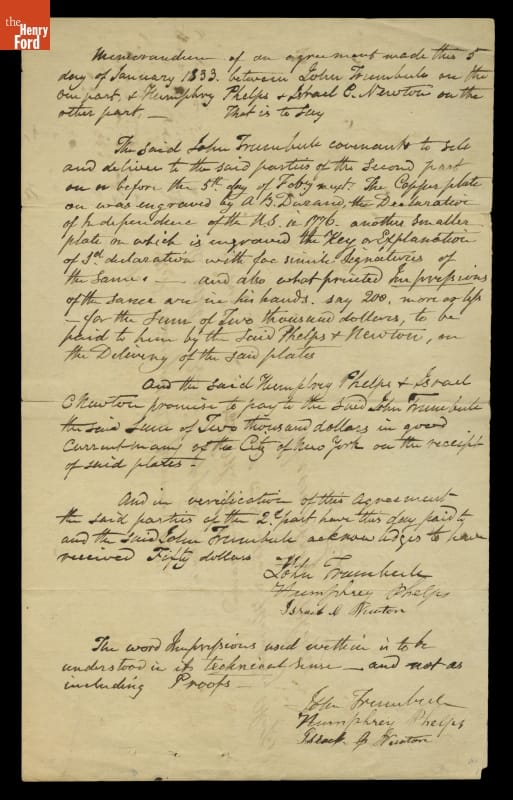 the
Henry
Ford
Memorandum of an agreement made this 5
day of January 1833. between John Trumbull on the
one part, & Humphrey Phelps & Israel C. Newton on the
other part, — That is to say
The said John Trumbull covenants to sell
and deliver to the said parties of the Second part
on or before the 5th day of Feby next. The Copper plate
on was engraved by A B. Durand, the Declaration
of Independence of the U.S. in 1776. another smaller
plate on which is engraved the Key or Explanation
of sd declaration with fac simile Signatures of
the Same. — and also what printed Impressions
of the Same are in his hands. say 200. more or less
— for the Sum of Two thousand dollars, to be
paid to him by the Said Phelps & Newton, on
the Delivery of the said plates
And the Said Humphrey Phelps & Israel
C Newton promise to pay to the said John Trumbull
the said Sum of Two thousand dollars in good
Current money of the City of New York on the receipt
of said plates —
And in verification of this Agreement
the said parties of the 2d. part have this day paid
and the Said John Trumbull acknowledges to have
received Fifty dollars
John Trumbull
Humphrey Phelps
Israel Newton
The word Impressions used within is to be
understood in its technical sense — and not as
including Proofs —
John Trumbull
Humphrey Phelps
Newton